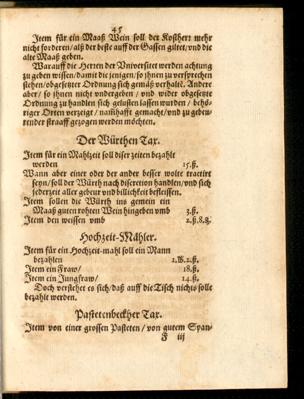 45
Item für ein Maaß Wein soll der Kostherr mehr
nicht forderen/ alß der beste auff der Gassen giltet/ und die
alte Maaß geben.
Warauff die Herren der Universitet werden achtung
zu geben wissen/ damit die jenigen/ so ihnen zu versprechen
stehen/ obgesetzter Ordnung sich gemäß verhaltẽ. Andere
aber/ so ihnen nicht undergeben/ und wider obgesetzte
Ordnung zu handlen sich gelusten lassen wurden/ behö-
riger Orten verzeigt/ namhafft gemacht/ und zu gebeu-
render straaff gezogen werden möchten.
Der Würthen Tax.
Item für ein Mahlzeit soll diser zeiten bezalt
werden 15.ß.
Wann aber einer oder der ander besser wolte tractirt
seyn/ soll der Würth nach discretion handlen/ und sich
jederzeit aller gebeur und billichkeit befleissen.
Item sollen die Würth ins gemein ein
Maaß guten rohten Wein hingeben vmb 3.ß.
Item den weissen vmb 2.ß.8.₰.
Hochzeit-Mähler.
Item für ein Hochzeit-mahl soll ein Mann
bezahlen 2.W.2.ß.
Item ein Fraw/ 18.ß.
Item ein Jungfraw/ 14.ß.
Doch verstehet es sich/ daß auff die Tisch nichts solle
bezahlt werden.
Pastetenbeckher Tax.
Item von einer grossen Pasteten/ von gutem Span-
F iij